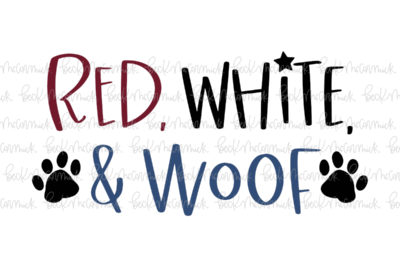 RED, WHITE,
& WOOF